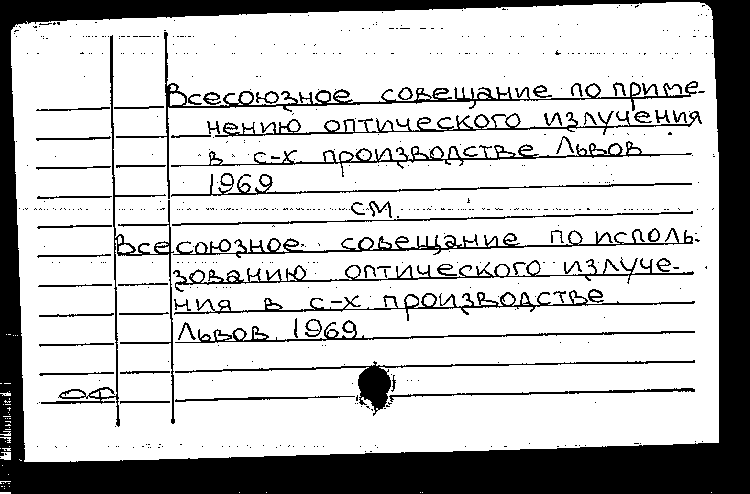 Всесоюзное совещание по приме-
нению оптического излучения
в с-х производстве Львов
1969
см.
Всесоюзное совещание по исполь-
зованию оптического излуче-
ния в с-х производстве
Львов 1969.
ОФ